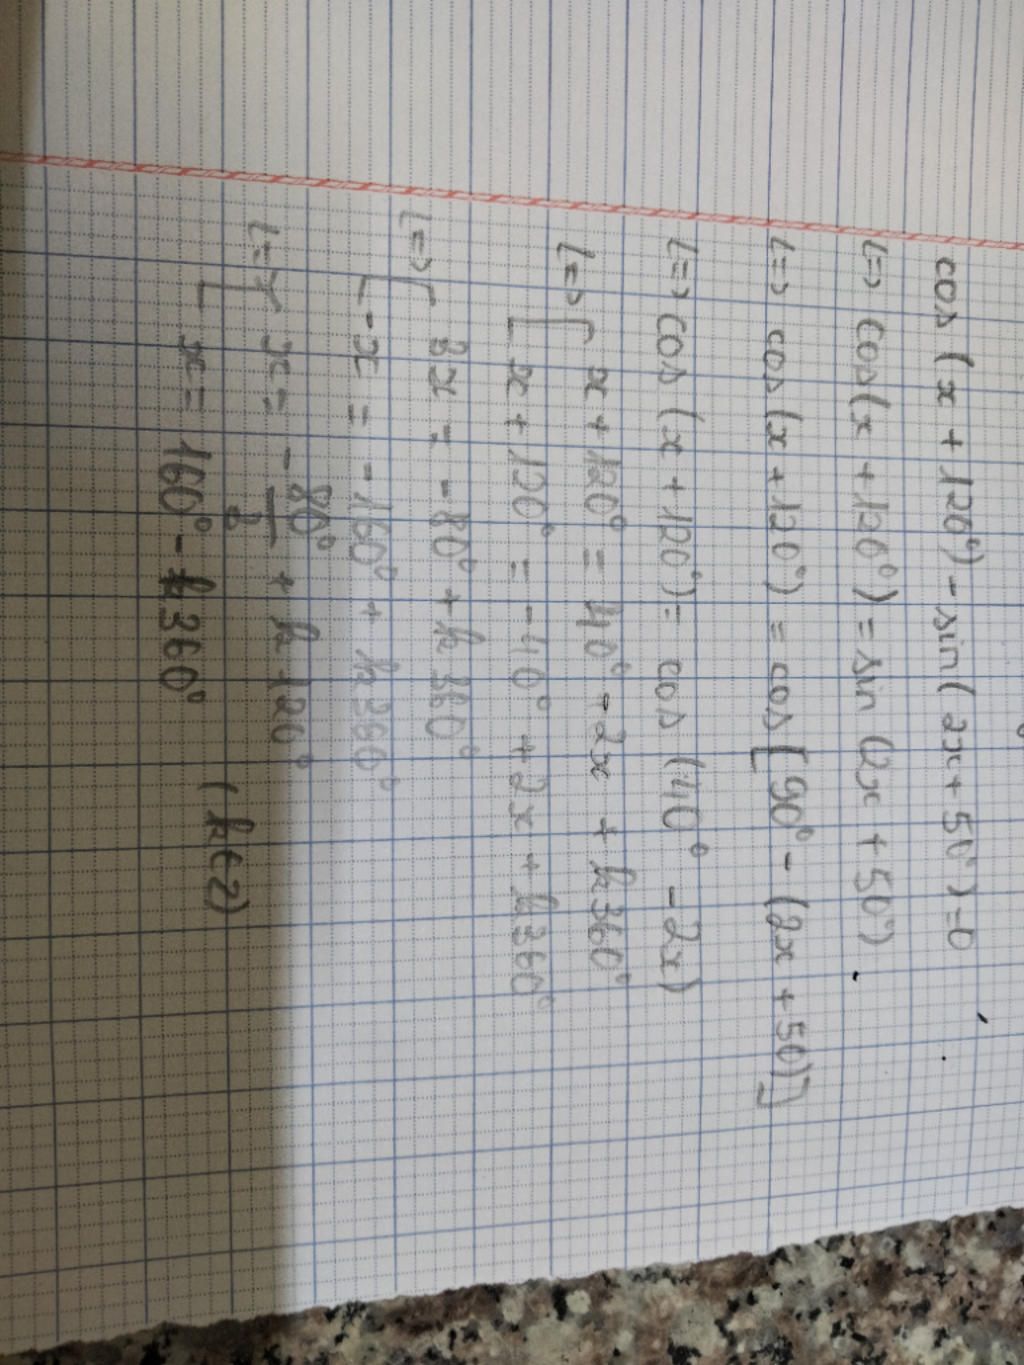 cos (x + 120°) - sin (2x + 50°) = 0
<=> cos (x + 120°) = sin (2x + 50°)
<=> cos (x + 120°) = cos [90° - (2x + 50)]
<=> cos (x + 120°) = cos (40° - 2x)
<=> [ x + 120° = 40° - 2x + k360°
[ x + 120° = -40° + 2x + k360°
<=> [ 3x = -80° + k360°
[ -x = -160° + k360°
<=> [ x = - 80°/3 + k 120°
[ x = 160° - k360°
(k ∈ Z)